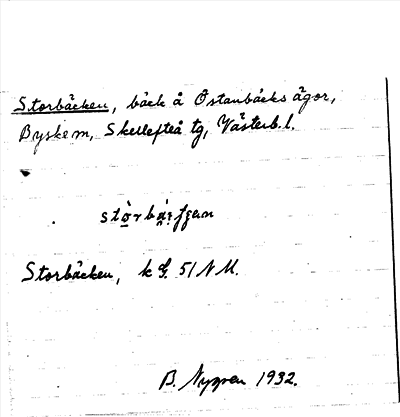 Storbäcken, bäck å Östanbäcks ägor,
Byske sn, Skellefteå tg, Västerb. l.
Storbäcken, k 51 NM.
B. Nygren 1932.